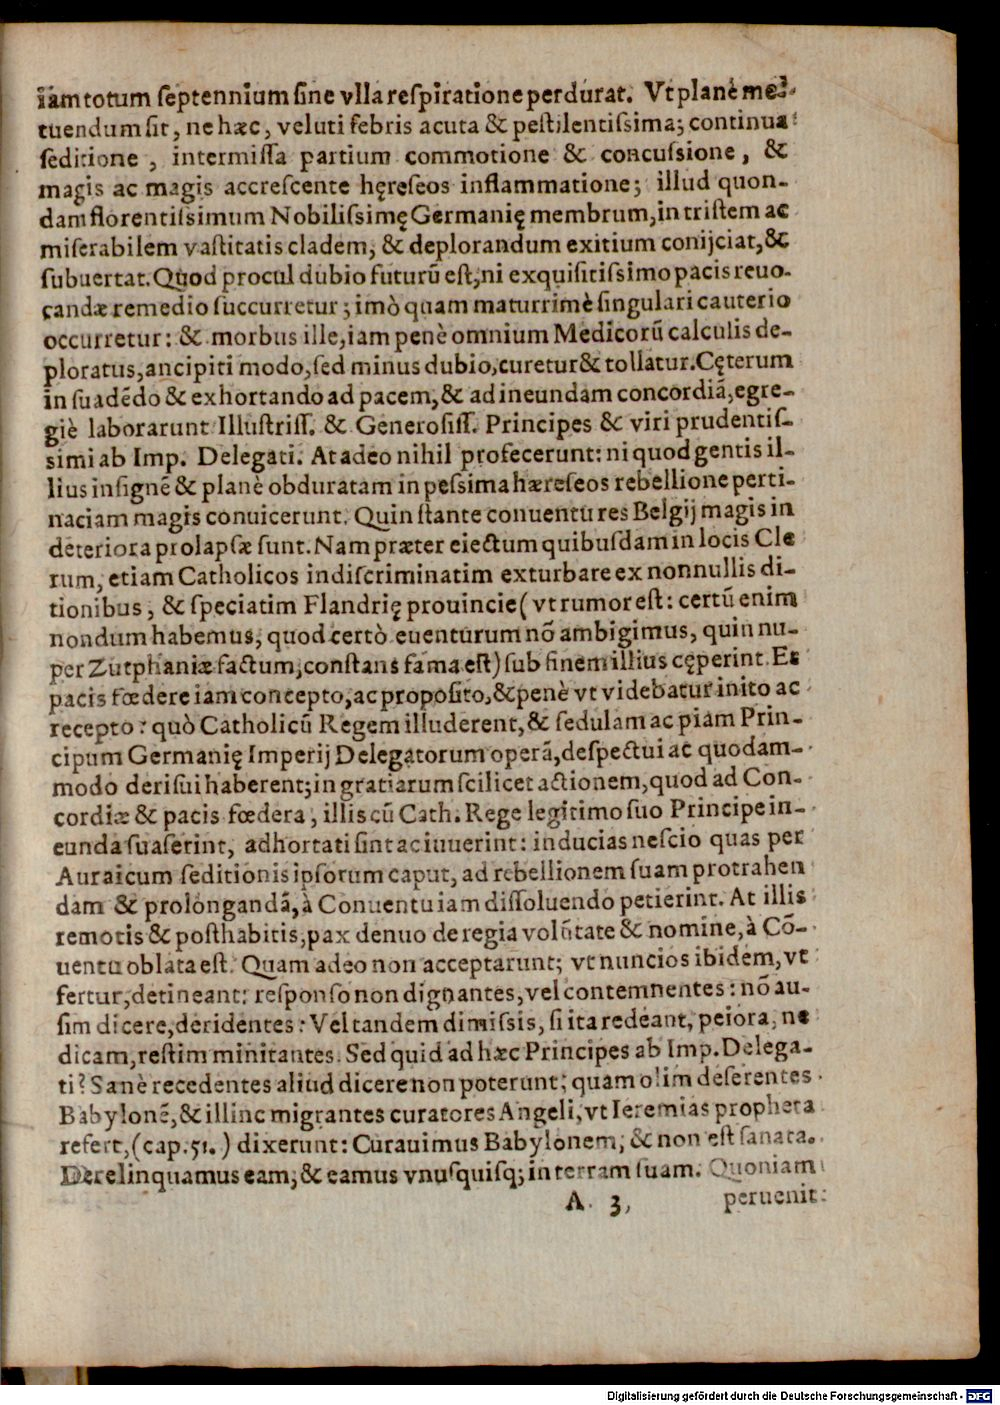 iam totum septennium sine vlla respiratione perdurat. Vt planè me-
tuendum sit, ne hæc, veluti febris acuta & pestilentissima; continua
seditione, intermissa partium commotione & concussione, &
magis ac magis accrescente hęreseos inflammatione; illud quon-
dam florentissimum Nobilissimę Germanię membrum, in tristem ac
miserabilem vastitatis cladem, & deplorandum exitium conijciat, &
subuertat. Quod procul dubio futurū est, ni exquisitissimo pacis reuo-
candæ remedio succurretur; imò quam maturrimè singulari cauterio
occurretur: & morbus ille, iam penè omnium Medicorū calculis de-
ploratus, ancipiti modo, sed minus dubio, curetur & tollatur. Cęterum
in suadēdo & exhortando ad pacem, & ad ineundam concordiā, egre-
giè laborarunt Illustriss. & Generosiss. Principes & viri prudentis-
simi ab Imp. Delegati. At adeo nihil profecerunt: ni quod gentis il-
lius insignē & planè obduratam in pessima hæreseos rebellione perti-
naciam magis conuicerunt. Quin stante conuentu res Belgij magis in
deteriora prolapsæ sunt. Nam præter eiectum quibusdam in locis Cle
rum, etiam Catholicos indiscriminatim exturbare ex nonnullis di-
tionibus, & speciatim Flandrię prouincie (vt rumor est: certū enim
nondum habemus, quod certò euenturum nō ambigimus, quin nu-
per Zutphaniæ factum, constans fama est) sub finem illius cęperint. Et
pacis fœdere iam concepto, ac proposito, & penè vt videbatur inito ac
recepto: quò Catholicū Regem illuderent, & sedulam ac piam Prin-
cipum Germanię Imperij Delegatorum operā, despectui ac quodam-
modo derisui haberent; in gratiarum scilicet actionem, quod ad Con-
cordiæ & pacis fœdera, illis cū Cath. Rege legitimo suo Principe in-
eunda suaserint, adhortati sint ac iuuerint: inducias nescio quas per
Auraicum seditionis ipsorum caput, ad rebellionem suam protrahen
dam & prolongandā, à Conuentu iam dissoluendo petierint. At illis
remotis & posthabitis, pax denuo de regia volūtate & nomine, à Cō-
uentu oblata est. Quam adeo non acceptarunt; vt nuncios ibidem, vt
fertur, detineant: responso non dignantes, vel contemnentes: nō au-
sim dicere, deridentes: Vel tandem dimissis, si ita redeant, peiora, ne
dicam, restim minitantes. Sed quid ad hæc Principes ab Imp. Delega-
ti? Sanè recedentes aliud dicere non poterunt; quam olim deserentes
Babylonē, & illinc migrantes curatores Angeli, vt Ieremias propheta
refert, (cap. 51.) dixerunt: Curauimus Babylonem, & non est sanata.
Derelinquamus eam; & eamus vnusquisq; in terram suam. Quoniam
A 3 peruenit
Digitalisierung gefördert durch die Deutsche Forschungsgemeinschaft - DFG